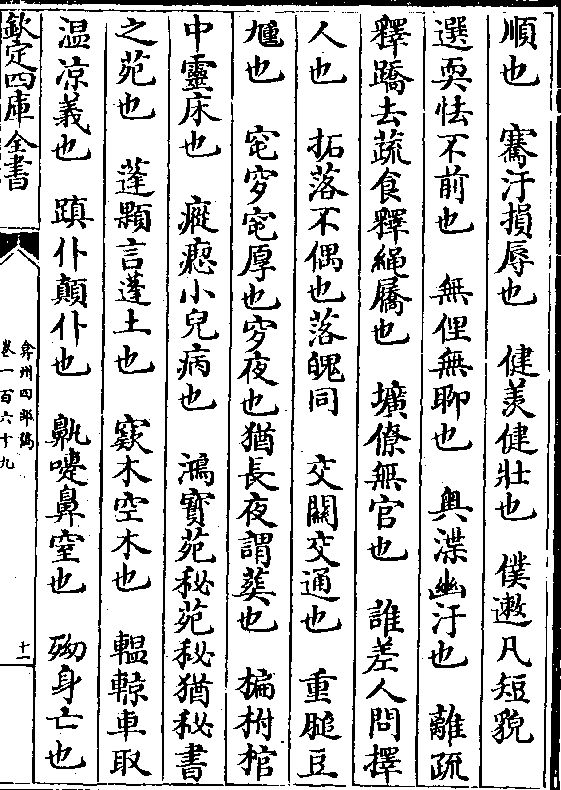 順也　騫汙損辱也　健羨健壯也　僕遬凡短貌
選耎怯不前也　無俚無聊也　輿渫幽汙也　離疏
釋蹻去蔬食釋繩屩也　壙僚無官也　誰差人問擇
人也　拓落不偶也落魄同　交關交通也　重膇豆
尰也　窀穸窀厚也穸夜也猶長夜謂葬也　楄柎棺
中靈床也　瘲瘛小兒病也　鴻寳苑秘苑秘猶秘書
之苑也　蓬顆言蓬土也　窾木空木也　輼輬車取
温凉義也　蹎仆顛仆也　鼽嚏鼻窒也　歾身亡也
欽定四庫全書
弇州四部稿
卷一百六十九
十一